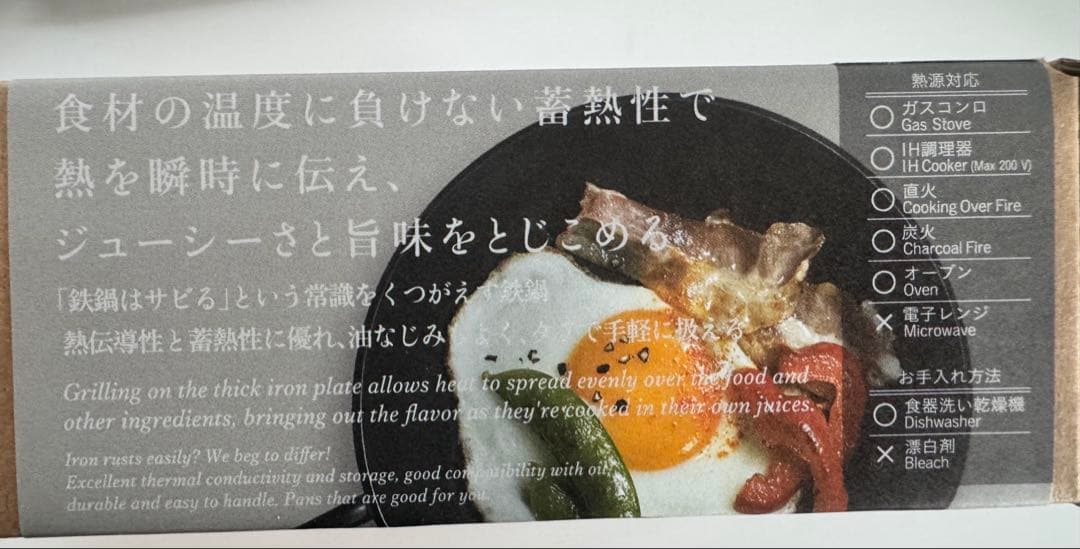 食材の温度に負けない蓄熱性で
熱を瞬時に伝え、
ジューシーさと旨味をとじこめる
「鉄鍋はサビる」という常識をくつがえす鉄鍋
熱伝導性と蓄熱性に優れ、油なじみ よく、 で手軽に扱える
Grilling on the thick iron plate allows heat to spread evenly over the food and
other ingredients, bringing out the flavor as they're cooked in their own juices.
Iron rusts easily? We beg to differ!
Excellent thermal conductivity and storage, good compatibility with oil,
durable and easy to handle. Pans that are good for you.
熱源対応
○ ガスコンロ
Gas Stove
○ IH調理器
IH Cooker (Max 200 V)
○ 直火
Cooking Over Fire
○ 炭火
Charcoal Fire
○ オーブン
Oven
× 電子レンジ
Microwave
お手入れ方法
○ 食器洗い乾燥機
Dishwasher
× 漂白剤
Bleach